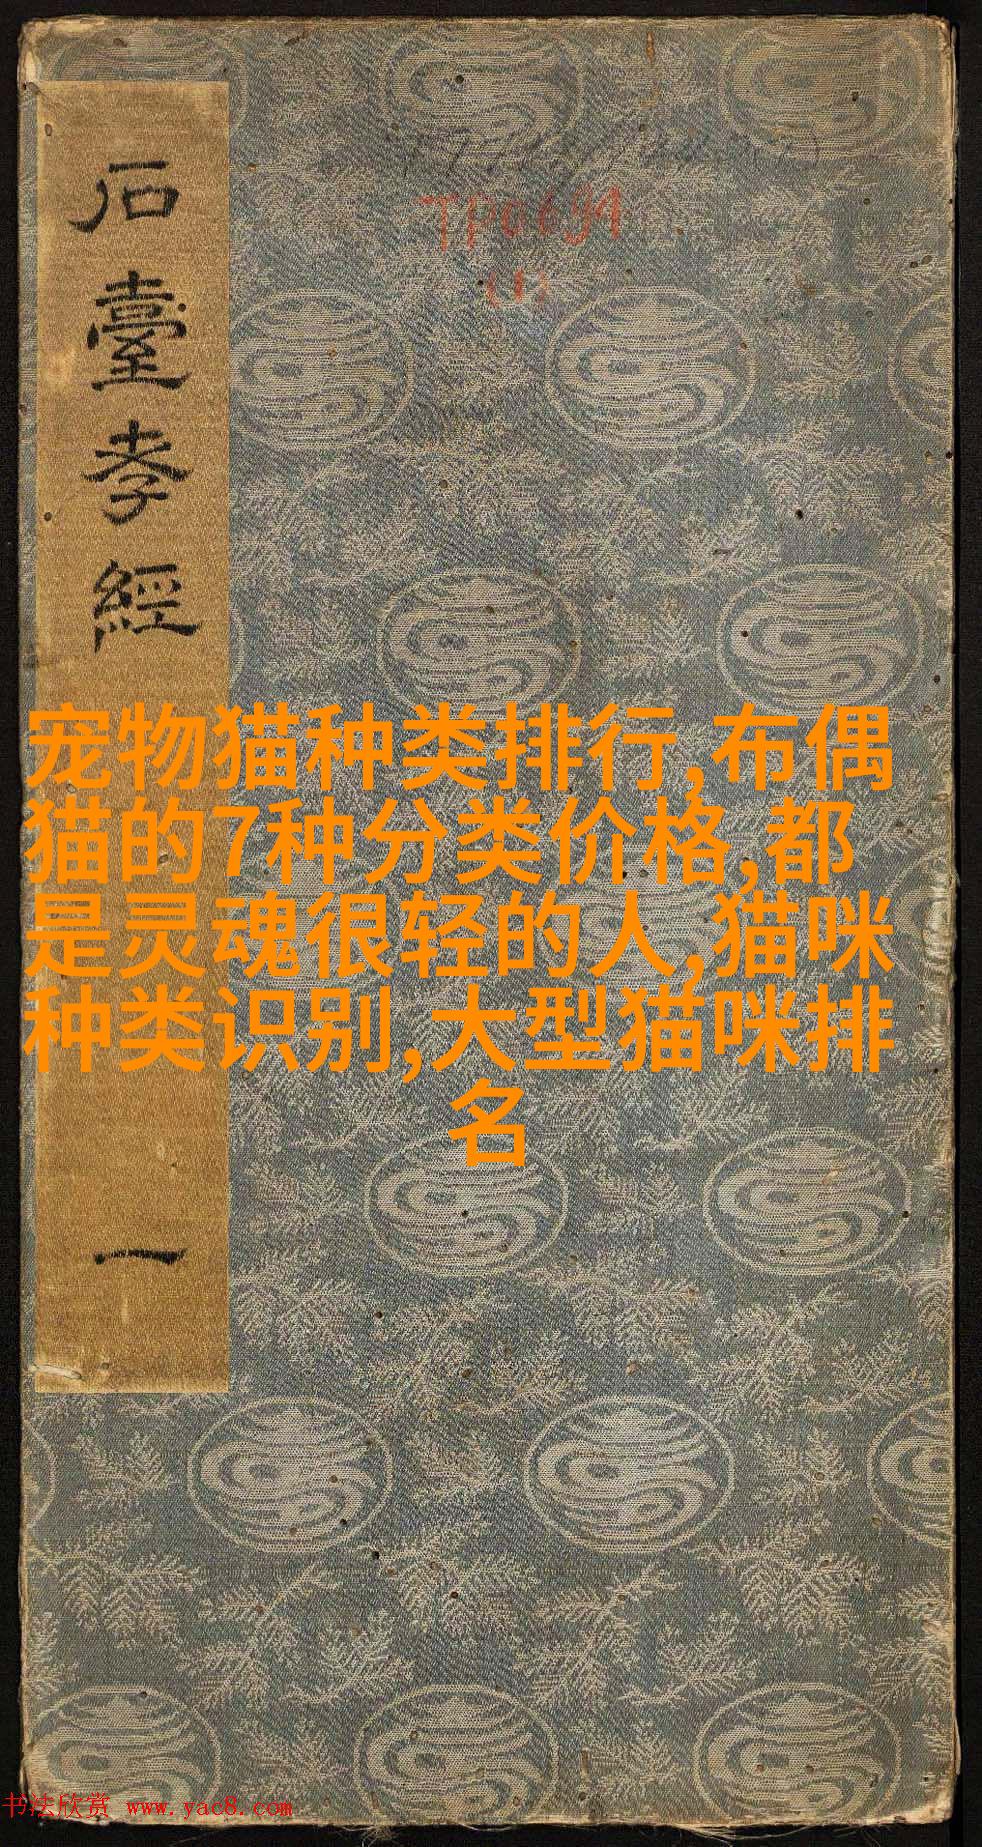 石臺孝經
一
TP0691
(1)
宠物猫种类排行,布偶
猫的7种分类价格,都
是灵魂很轻的人,猫咪
种类识别,大型猫咪排
名
书法欣赏 www.yac8.com